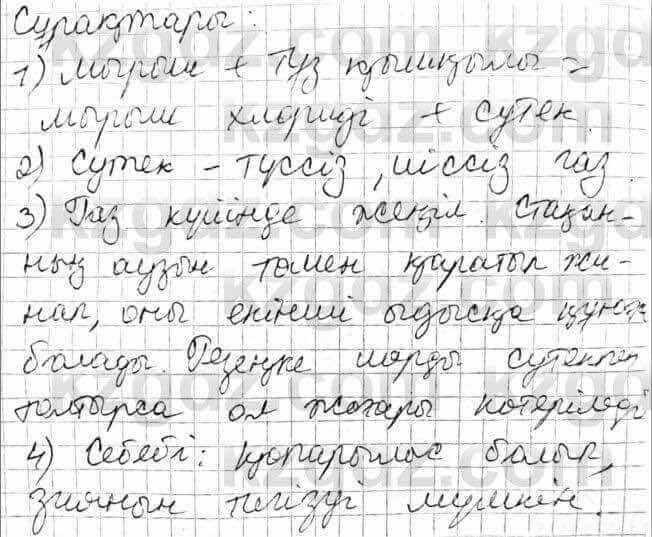 Сұрақтары:
1) Мырыш + Тұз қышқылы =
мырыш хлориді + сутек.
2) Сутек - түссіз, иіссіз газ.
3) Газ күйінде жеңіл. Стақан-
ның аузын төмен қаратып жи-
нап, оны екінші ыдысқа құюға
болады. Резеңке шарды сутекпен
толтырса ол жоғары көтеріледі
4) Себебі: қопарылыс болып,
зиянын тигізуі мүмкін.
kzgdz.com